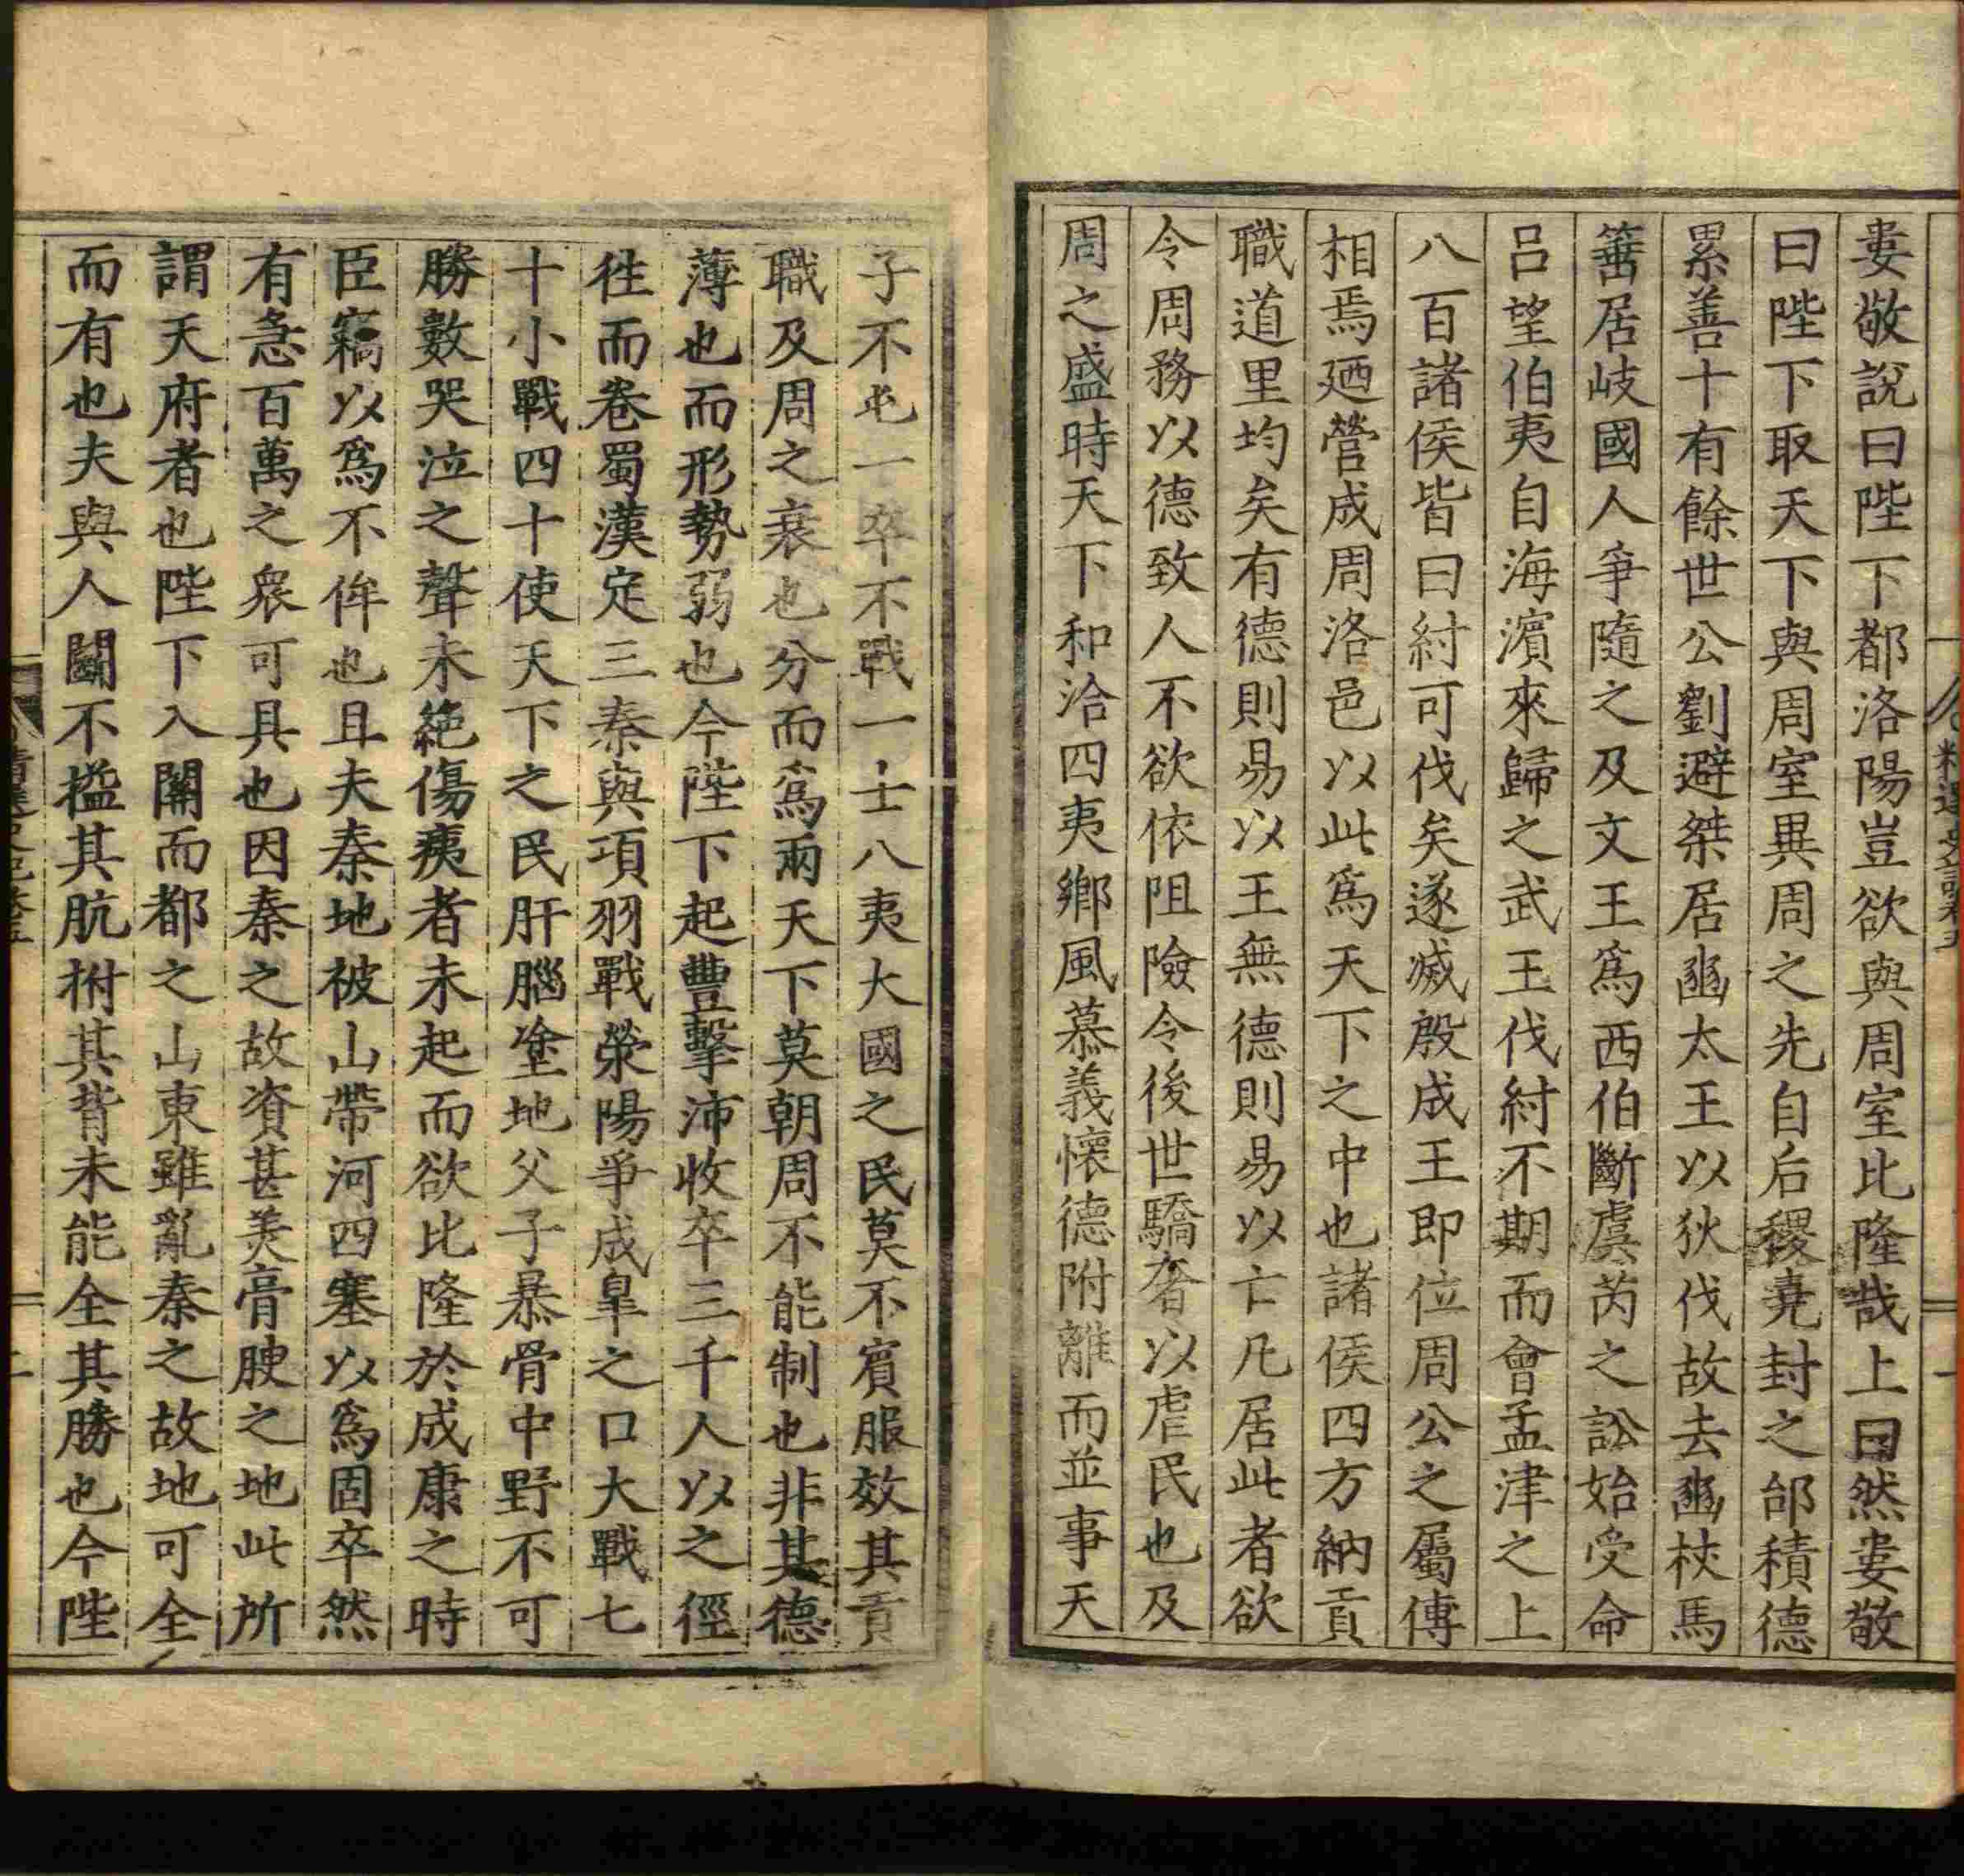 婁敬說曰陛下都洛陽豈欲與周室比隆哉上曰然婁敬
曰陛下取天下與周室異周之先自后稷堯封之邰積德
累善十有餘世公劉避桀居豳太王以狄伐故去豳杖馬
箠居岐國人爭隨之及文王爲西伯斷虞芮之訟始受命
吕望伯夷自海濱來歸之武王伐紂不期而會孟津之上
八百諸侯皆曰紂可伐矣遂滅殷成王即位周公之屬傅
相焉廼營成周洛邑以此爲天下之中也諸侯四方納貢
職道里均矣有德則易以王無德則易以亡凡居此者欲
令周務以德致人不欲依阻險令後世驕奢以虐民也及
周之盛時天下和洽四夷鄉風慕義懷德附離而並事天
子不屯一卒不戰一士八夷大國之民莫不賓服效其貢
職及周之衰也分而爲兩天下莫朝周不能制也非其德
薄也而形勢弱也今陛下起豐擊沛收卒三千人以之徑
徃而卷蜀漢定三秦與項羽戰滎陽爭成皐之口大戰七
十小戰四十使天下之民肝腦塗地父子暴骨中野不可
勝數哭泣之聲未絶傷痍者未起而欲比隆於成康之時
臣竊以爲不侔也且夫秦地被山帶河四塞以爲固卒然
有急百萬之衆可具也因秦之故資甚羙膏腴之地此所
謂天府者也陛下入關而都之山東雖亂秦之故地可全
而有也夫與人鬬不搤其肮拊其背未能全其勝也今陛